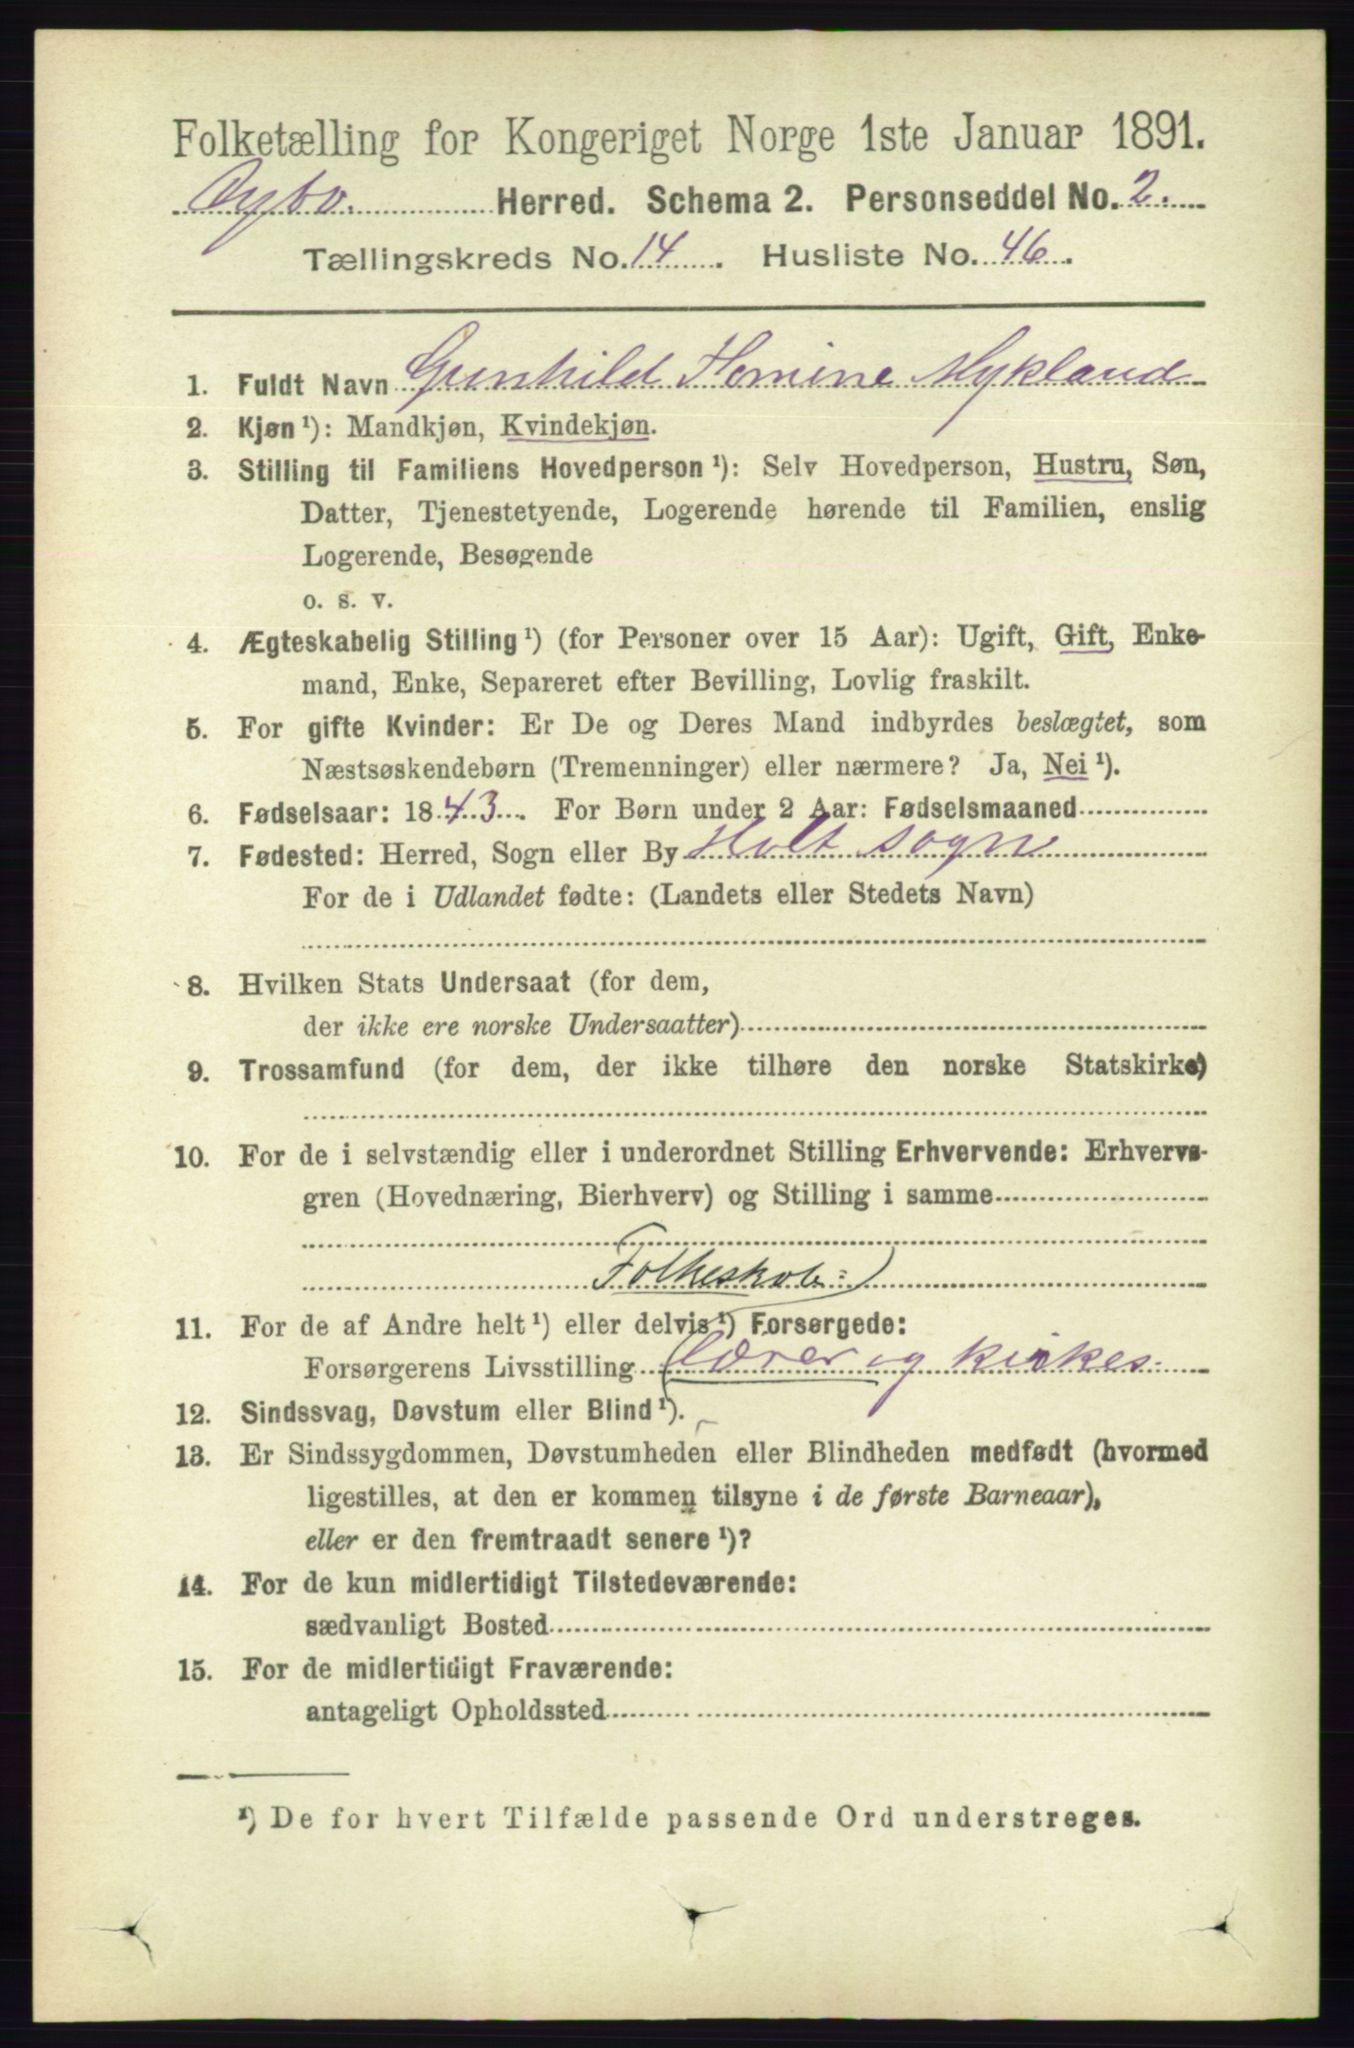 Folketælling for Kongeriget Norge 1ste Januar 1891.
Dybv. Herred. Schema 2. Personseddel No. 2.
Tællingskreds No. 14. Husliste No. 46.
1. Fuldt Navn Gunhild Homine Mykland
2. Kjøn ¹): Mandkjøn, Kvindekjøn.
3. Stilling til Familiens Hovedperson ¹): Selv Hovedperson, Hustru, Søn,
Datter, Tjenestetyende, Logerende hørende til Familien, enslig
Logerende, Besøgende
o. s. v.
4. Ægteskabelig Stilling ¹) (for Personer over 15 Aar): Ugift, Gift, Enke-
mand, Enke, Separeret efter Bevilling, Lovlig fraskilt.
5. For gifte Kvinder: Er De og Deres Mand indbyrdes beslægtet, som
Næstsøskendebørn (Tremenninger) eller nærmere? Ja, Nei ¹).
6. Fødselsaar: 1843. For Børn under 2 Aar: Fødselsmaaned
7. Fødested: Herred, Sogn eller By Holt sogn
For de i Udlandet fødte: (Landets eller Stedets Navn)
8. Hvilken Stats Undersaat (for dem,
der ikke ere norske Undersaatter)
9. Trossamfund (for dem, der ikke tilhøre den norske Statskirke)
10. For de i selvstændig eller i underordnet Stilling Erhvervende: Erhvervs-
gren (Hovednæring, Bierhverv) og Stilling i samme
Folkeskole=
11. For de af Andre helt ¹) eller delvis ¹) Forsørgede:
Forsørgerens Livsstilling lærer og kirkes.
12. Sindssvag, Døvstum eller Blind ¹).
13. Er Sindssygdommen, Døvstumheden eller Blindheden medfødt (hvormed
ligestilles, at den er kommen tilsyne i de første Barneaar),
eller er den fremtraadt senere ¹)?
14. For de kun midlertidigt Tilstedeværende:
sædvanligt Bosted
15. For de midlertidigt Fraværende:
antageligt Opholdssted
¹) De for hvert Tilfælde passende Ord understreges.